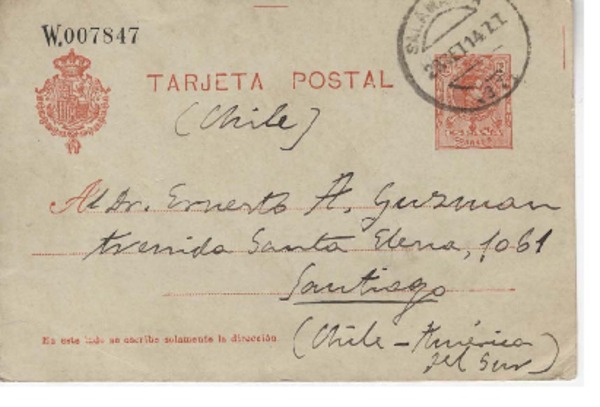 W.007847
TARJETA POSTAL
(Chile)
Al Dr. Ernesto A. Guzman
Avenida Santa Elena, 1061
Santiago
(Chile - América
del Sur)
En este lado se escribe solamente la dirección.